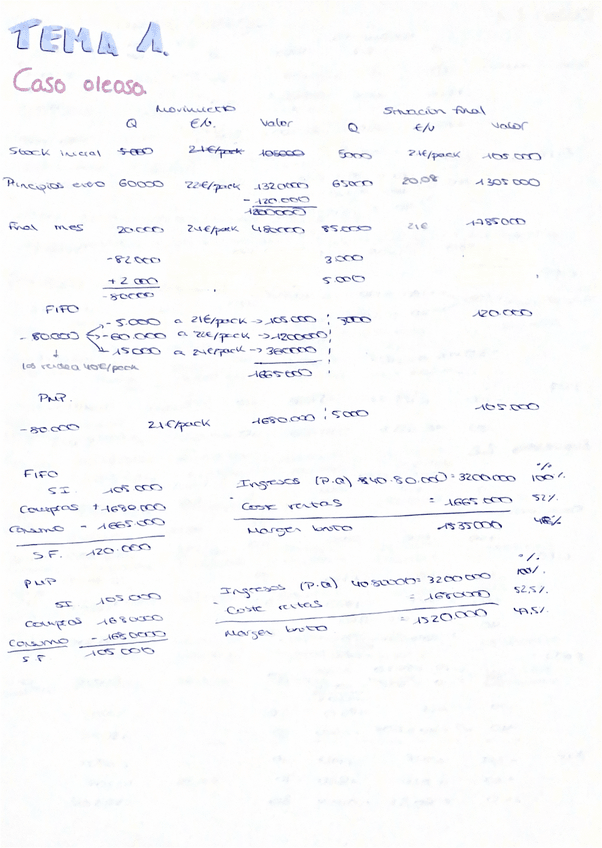 TEMA 1.
Caso oleasa
Movimiento Situación final
Q €/u. Valor Q €/u valor
Stock inicial 5000 21€/pack 105000 5000 21€/pack 105000
Principios 60000 22€/pack 1320000 65000 20,08 1305000
- 120.000
1200000
final mes 20000 24€/pack 480000 85.000 21€ 1785000
-82000 3000
+2000 5000
-80000
FIFO
-5.000 a 21€/pack → 105000 3000 120.000
-80.000 -60.000 a 22€/pack → 1200000
15000 a 24€/pack → 360000
los vendo a 40€/pack
1665000
PMP.
-80000 21€/pack 1680.000 5000 105.000
FIFO
%
S.I. 105000 Ingresos (P.Q) 40.80.000 = 3200000 100%
Compras +1680000 Coste ventas = 1665000 52%
Consumo - 1665000 Margen bruto 1535000 48%
S.F. 120.000
PMP
%
SI 105000 Ingresos (P.Q) 4080000 = 3200000 100%
Compras 1680000 Coste ventas = 1680000 52,5%
Consumo - 1680000 Margen bruto = 1520.000 47,5%
SF 105000